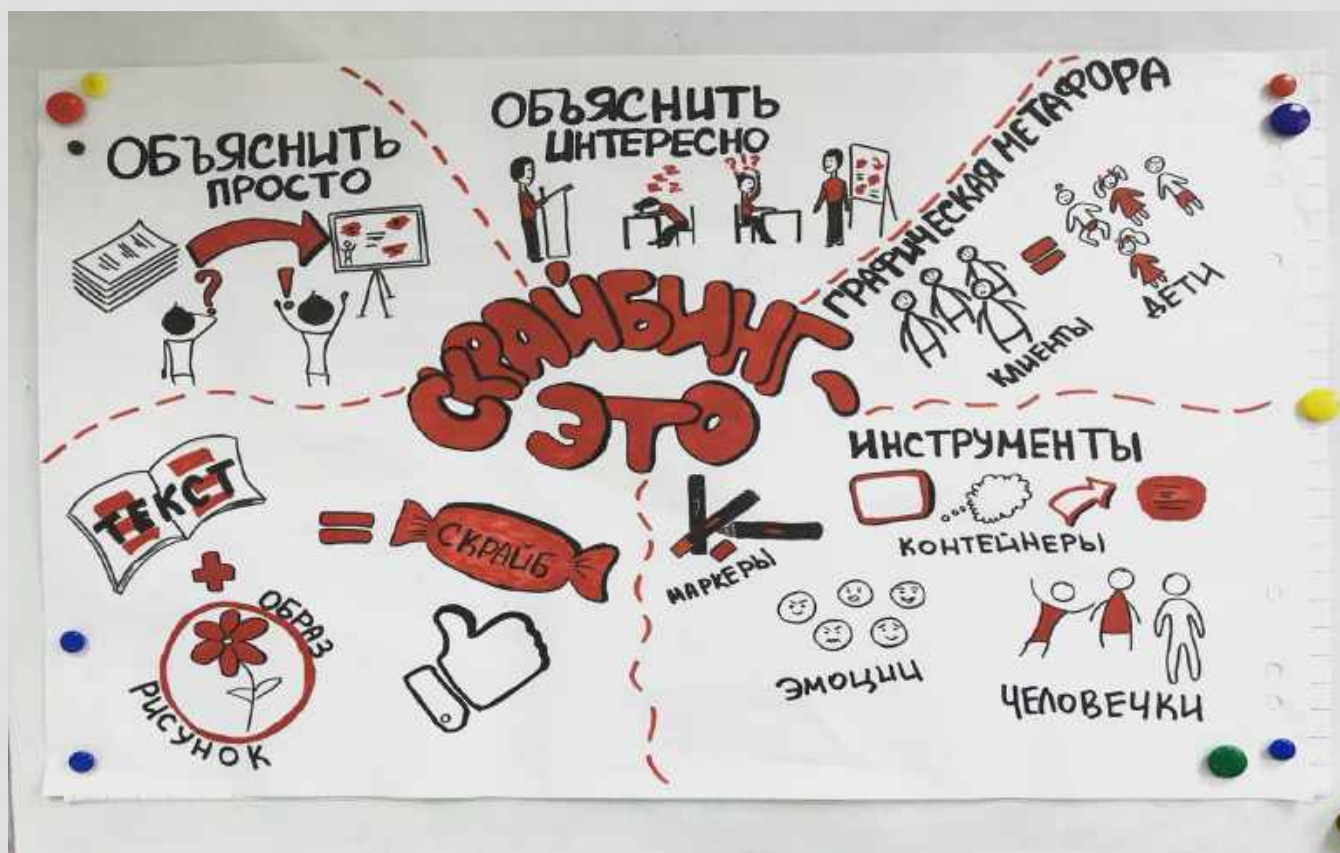 ОБЪЯСНИТЬ
ПРОСТО
?
!
ОБЪЯСНИТЬ
ИНТЕРЕСНО
z z z z
?!?
ГРАФИЧЕСКАЯ МЕТАФОРА
=
КЛИЕНТЫ
ДЕТИ
СКРАЙБИНГ,
ЭТО
ТЕКСТ
+
ОБРАЗ
РИСУНОК
=
СКРАЙБ
ИНСТРУМЕНТЫ
МАРКЕРЫ
КОНТЕЙНЕРЫ
ЭМОЦИИ
ЧЕЛОВЕЧКИ